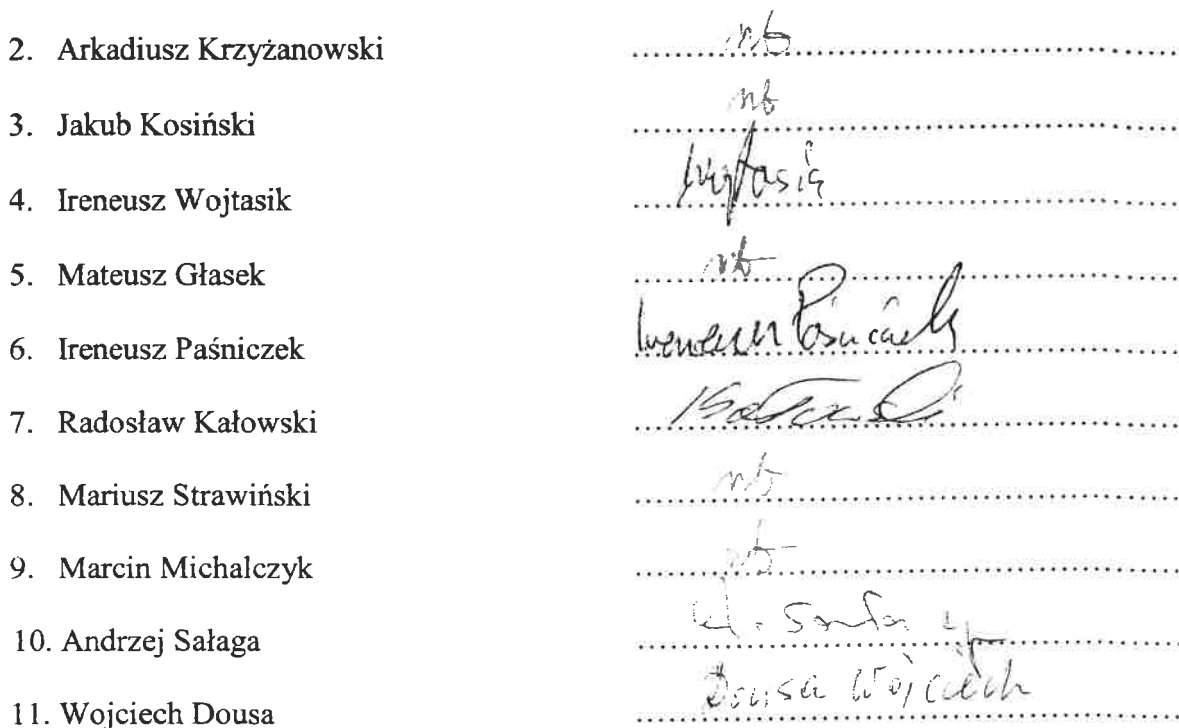 2. Arkadiusz Krzyżanowski nb
3. Jakub Kosiński nb
4. Ireneusz Wojtasik Wojtasik
5. Mateusz Głasek nb
6. Ireneusz Paśniczek Ireneusz Paśniczek
7. Radosław Kałowski Kałowski
8. Mariusz Strawiński nb
9. Marcin Michalczyk nb
10. Andrzej Sałaga
11. Wojciech Dousa Dousa Wojciech